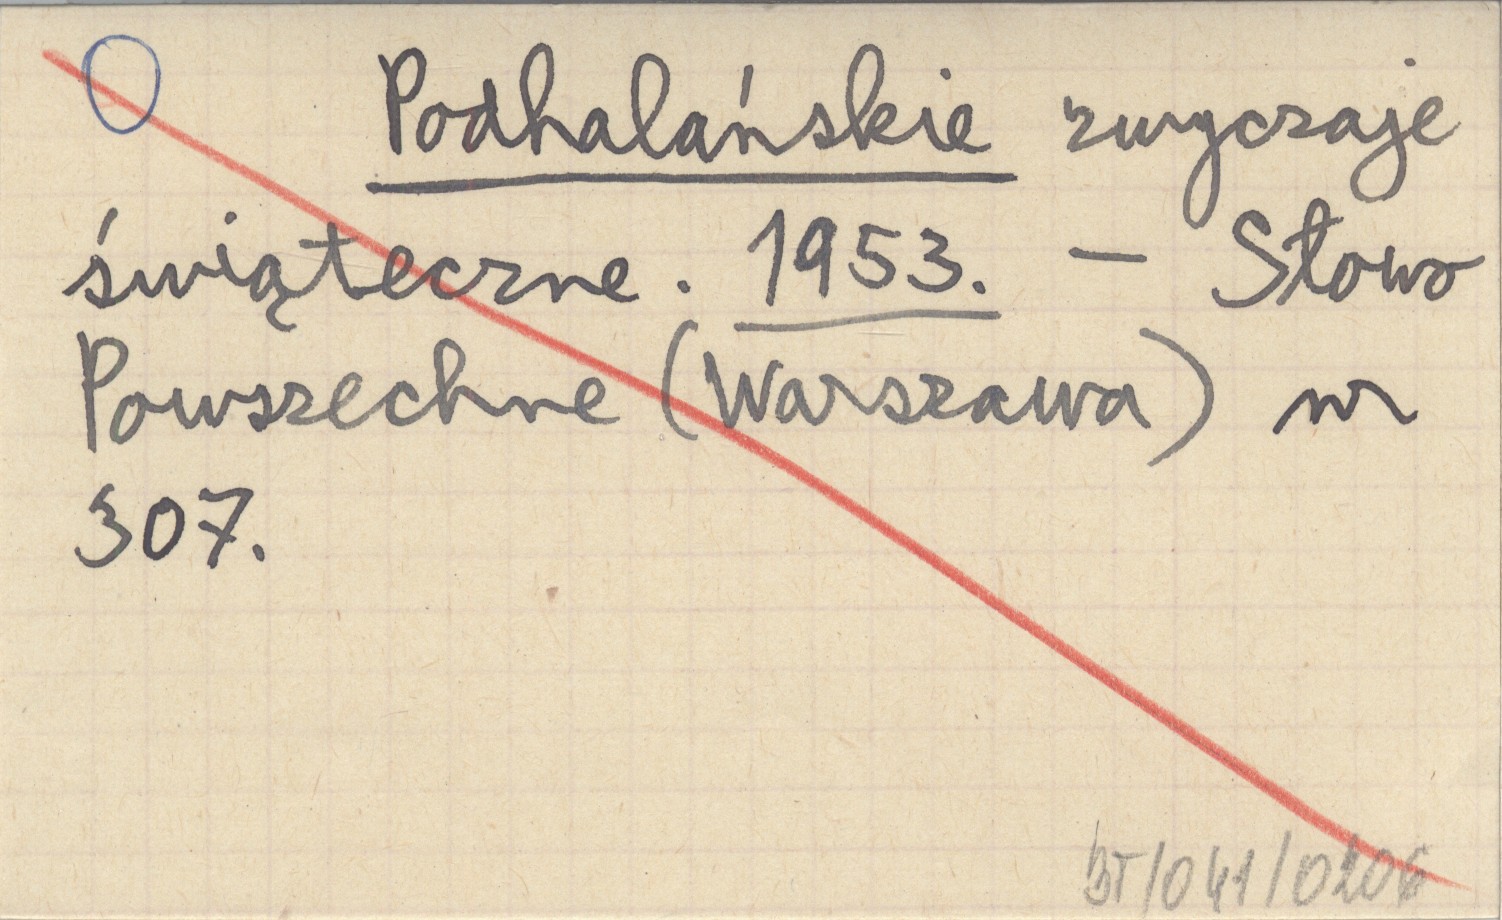 Podhalańskie zwyczaje
świąteczne. 1953. – Słowo
Powszechne (Warszawa) nr
307.
BT/041/0206